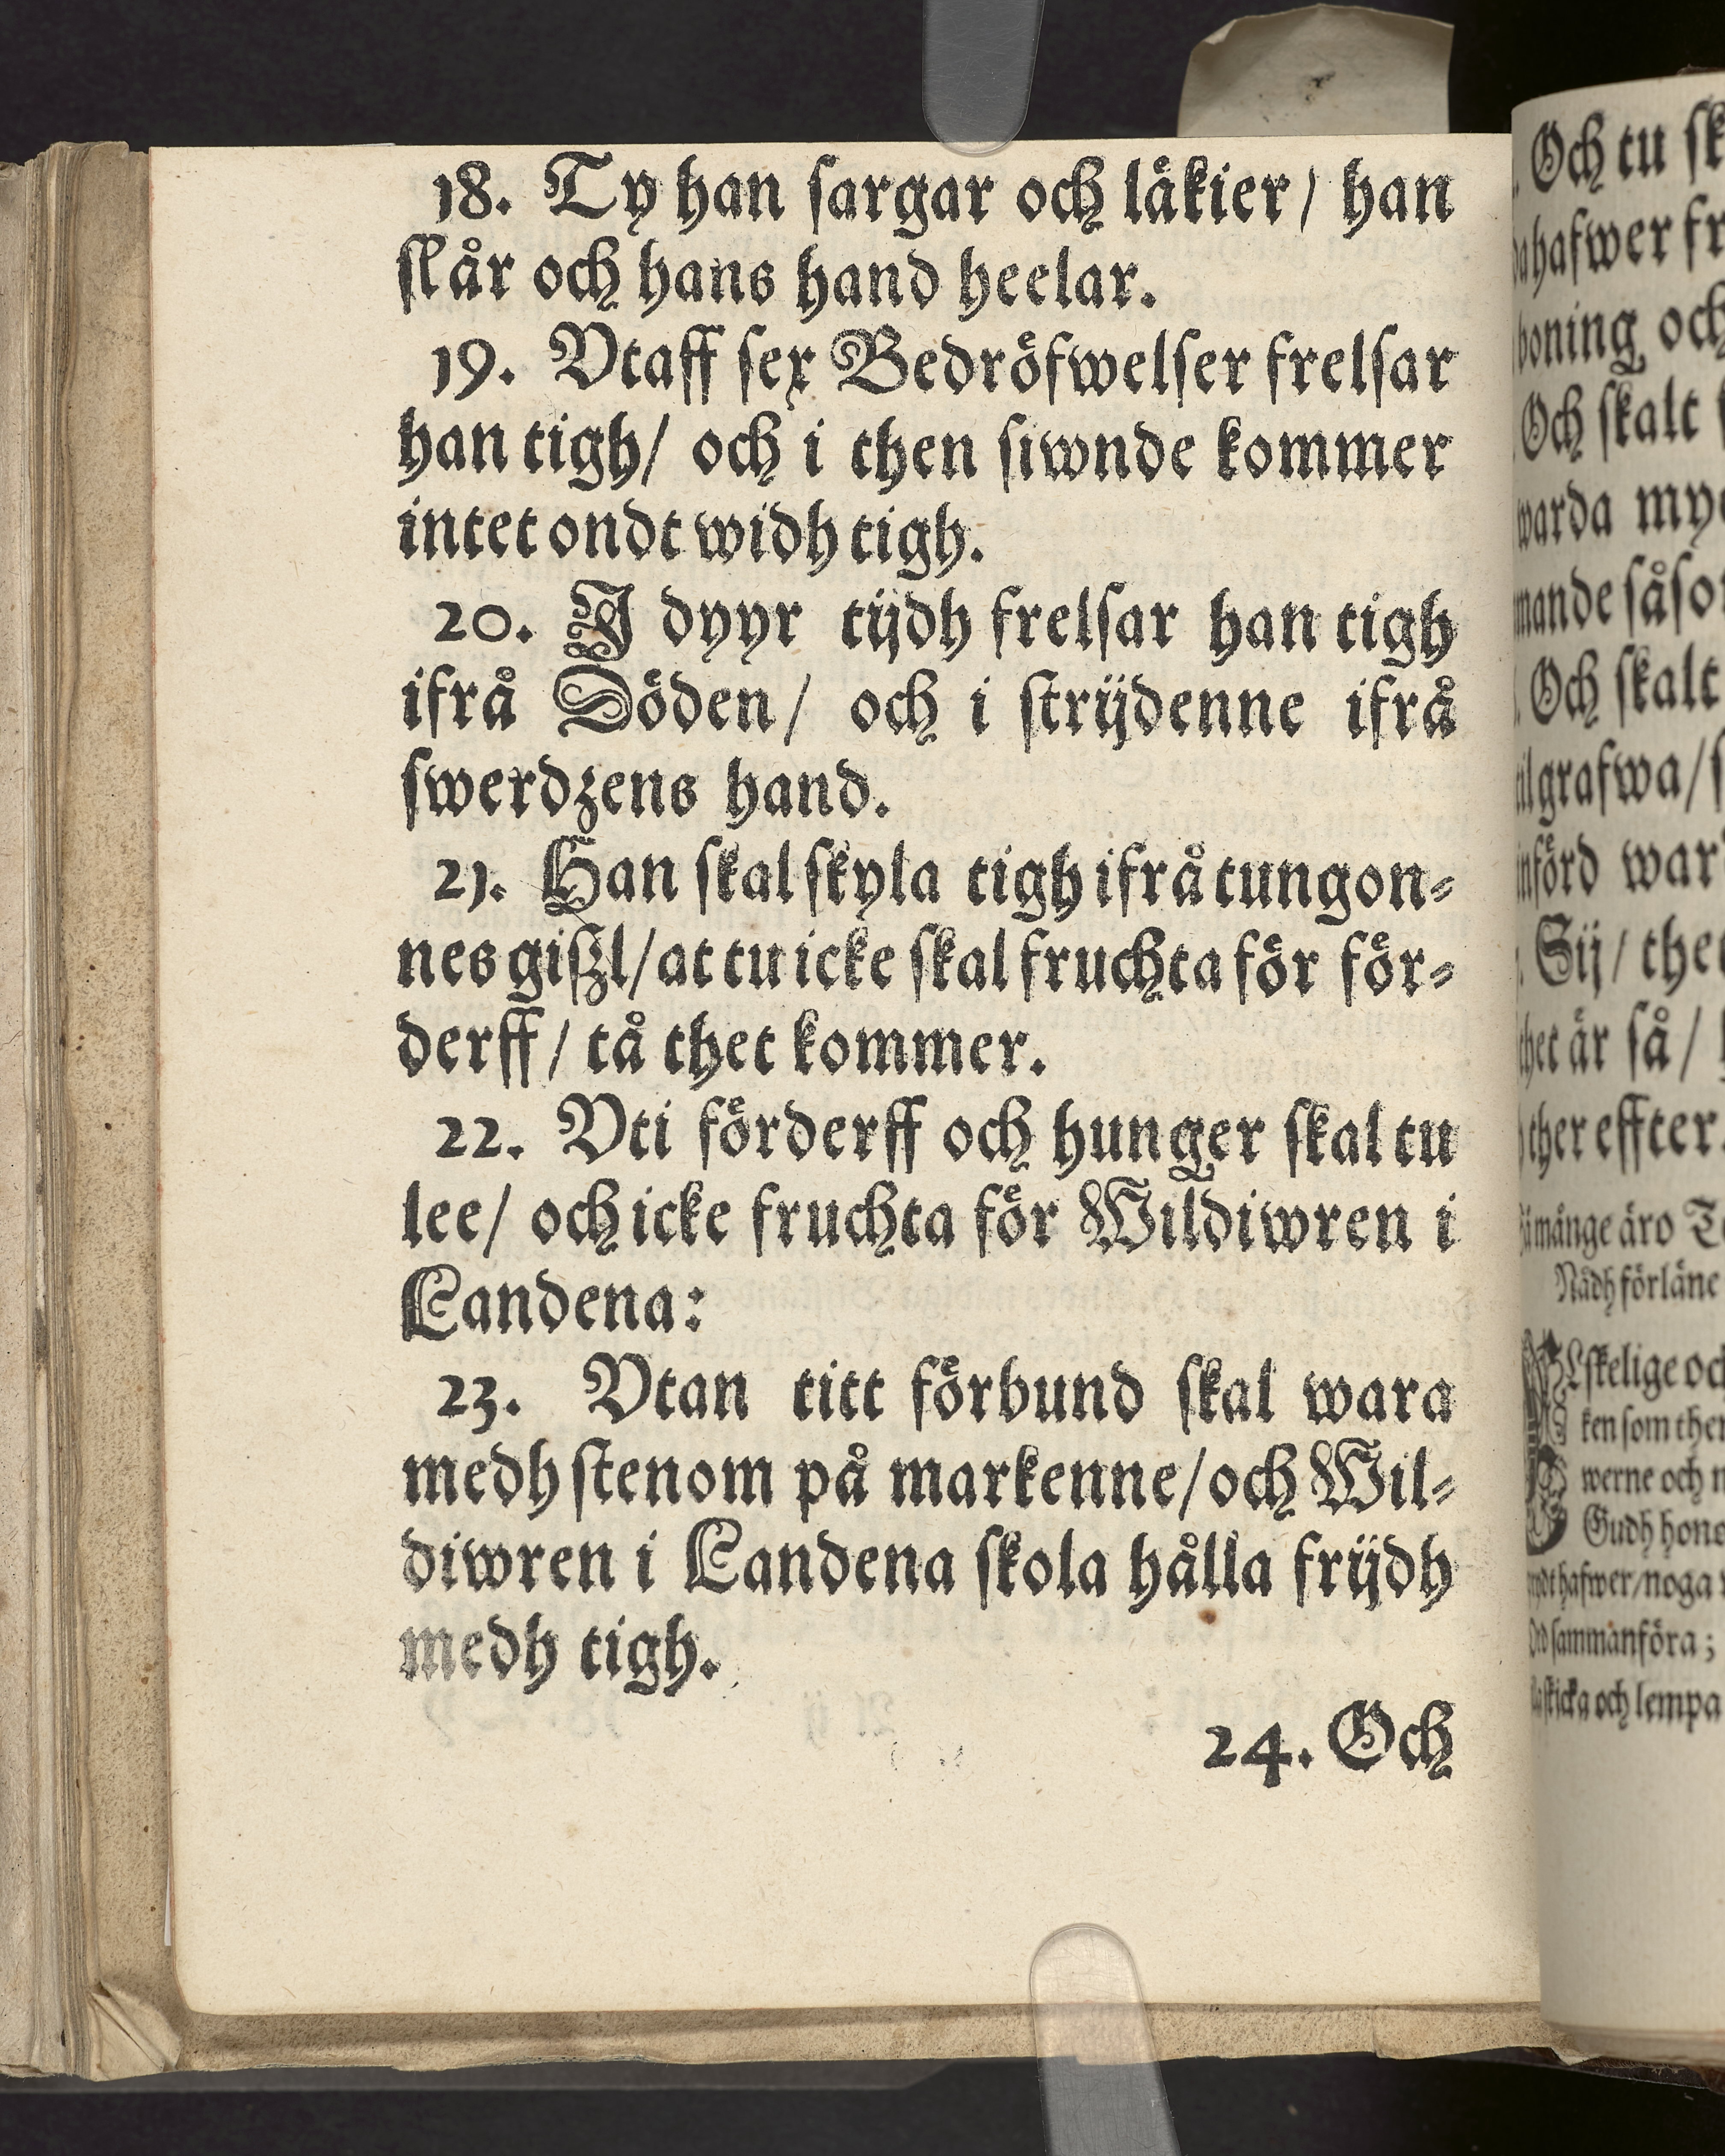 18. Ty han sargar och läkier / han
slår och hans hand heelar.
19. Vtaff sex Bedröfwelser frelsar
han tigh / och i then siwnde kommer
intet ondt widh tigh.
20. J dyyr tijdh frelsar han tigh
ifrå Döden / och i strijdenne ifrå
swerdzens hand.
21. Han skal skyla tigh ifrå tungon-
nes giszl / at tu icke skal fruchta för för-
derff / tå thet kommer.
22. Vti förderff och hunger skal tu
lee / och icke fruchta för Wildiwren i
Landena:
23. Vtan titt förbund skal wara
medh stenom på markenne / och Wil-
diwren i Landena skola hålla frijdh
medh tigh.
24. Och
Och tu
hafwer
och
Och skalt
warda
Och skalt
war
Sij / 
thet är så /
ther effter.
månge äro
Nådh förläne
som
werne och
Gudh
hafwer / noga
sammanföra;
skicka och lempa